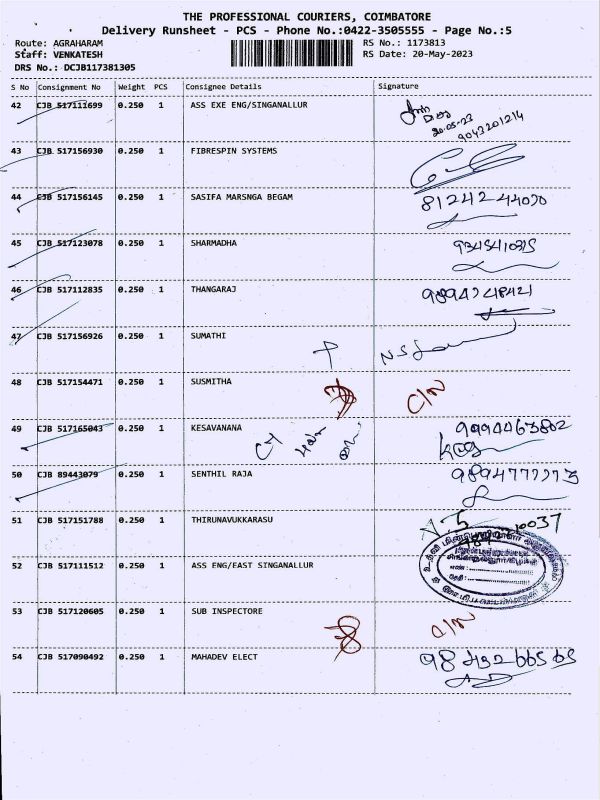 THE PROFESSIONAL COURIERS, COIMBATORE
Delivery Runsheet - PCS - Phone No.:0422-3505555 - Page No.:5
Route: AGRAHARAM RS No.: 1173813
Staff: VENKATESH RS Date: 20-May-2023
DRS No.: DCJB117381305
S No Consignment No Weight PCS Consignee Details Signature
42 CJB 517111699 0.250 1 ASS EXE ENG/SINGANALLUR
20-05-23
9043201214
43 CJB 517156930 0.250 1 FIBRESPIN SYSTEMS
44 CJB 517156145 0.250 1 SASIFA MARSNGA BEGAM 8124244070
45 CJB 517123078 0.250 1 SHARMADHA
46 CJB 517112835 0.250 1 THANGARAJ 9894748421
47 CJB 517156926 0.250 1 SUMATHI
48 CJB 517154471 0.250 1 SUSMITHA C/N
49 CJB 517165043 0.250 1 KESAVANANA 9994463802
50 CJB 89443079 0.250 1 SENTHIL RAJA 9894777773
51 CJB 517151788 0.250 1 THIRUNAVUKKARASU
52 CJB 517111512 0.250 1 ASS ENG/EAST SINGANALLUR
53 CJB 517120605 0.250 1 SUB INSPECTORE C/N
54 CJB 517090492 0.250 1 MAHADEV ELECT 9843266565